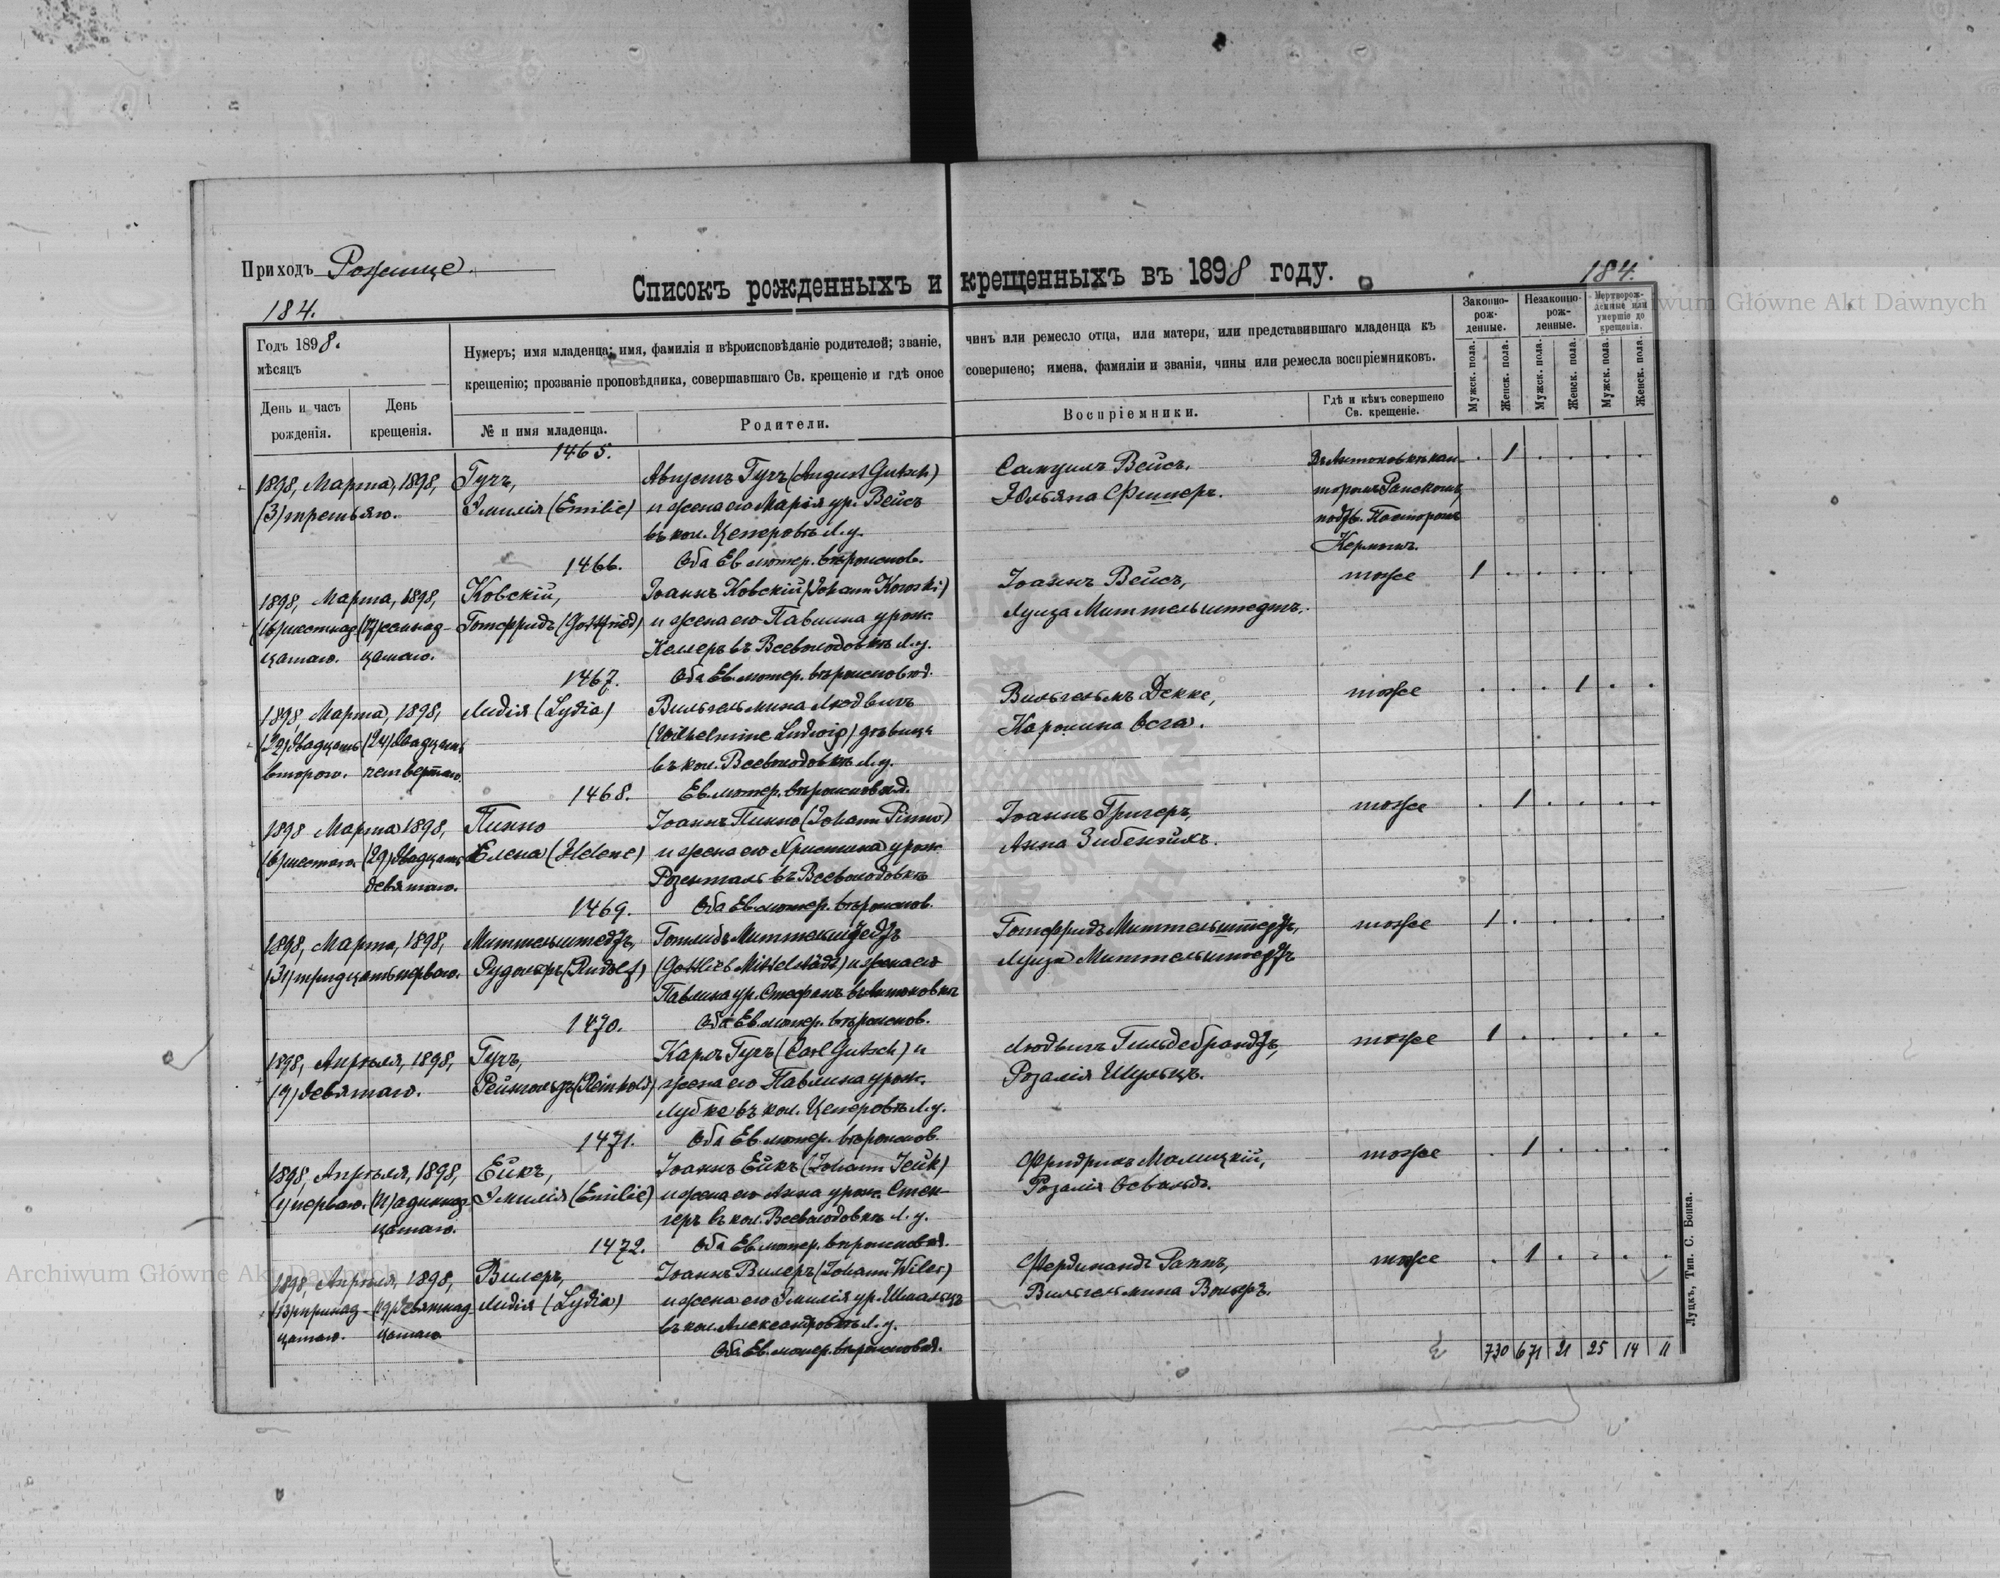 Приходъ Рожище.
Списокъ рожденныхъ и крещенныхъ въ 1898 году.
184.
184.
Годъ 1898.
мѣсяцъ
День и часъ
рожденія.
День
крещенія.
Нумеръ; имя младенца; имя, фамилія и вѣроисповѣданіе родителей; званіе,
крещенію; прозваніе проповѣдника, совершавшаго Св. крещеніе и гдѣ оное
№ и имя младенца.
Родители.
чинъ или ремесло отца, или матери, или представившаго младенца къ
совершено; имена, фамиліи и званія, чины или ремесла воспріемниковъ.
Воспріемники.
Гдѣ и кѣмъ совершено
Св. крещеніе.
Законно-
рож-
денные.
Незаконно-
рож-
денные.
Мертворож-
денные или
умершіе до
крещенія.
Мужск. пола.
Женск. пола.
Мужск. пола.
Женск. пола.
Мужск. пола.
Женск. пола.
1465.
1898, Марта, 1898,
(3) третьяго.
Гучъ,
Эмилія (Emilie)
Августъ Гучъ (August Gutsch)
и жена его Марія ур. Вейсъ
въ кол. Цеперовъ Л. у.
Оба Ев. лютер. вѣроиспов.
Самуилъ Вейсъ,
Юльяна Фишеръ.
Въ Антоновкѣ кан-
торомъ
подтв. Пасторомъ
Кермомъ.
1
1466.
1898, Марта, 1898,
(16) шестнад-
цатаго.
(17) семнад-
цатаго.
Ковскій,
Готфридъ (Gottfried)
Іоаннъ Ковскій (Johann Kowski)
и жена его Павлина урож.
Келлеръ въ Всеволодовкѣ Л. у.
Оба Ев. лютер. вѣроисповѣд.
Іоаннъ Вейсъ,
Луиза Миттельштедтъ.
тоже
1
1467.
1898, Марта, 1898,
(22) двадцать
второго.
(24) двадцать
четвертаго.
Лидія (Lydia)
Вильгельмина Людвигъ
(Wilhelmine Ludwig) дѣвица
въ кол. Всеволодовкѣ Л. у.
Ев. лютер. вѣроисповѣд.
Вильгельмъ Декке,
Каролина Осга.
тоже
1
1468.
1898 Марта 1898,
(6) шестаго.
(29) двадцать
девятаго.
Пинно
Елена (Helene)
Іоаннъ Пинно (Johann Pinno)
и жена его Христина урож.
Розенталь въ Всеволодовкѣ
Оба Ев. лютер. вѣроиспов.
Іоаннъ Григеръ,
Анна Зибенейхъ.
тоже
1
1469.
1898, Марта, 1898,
(31) тридцать перваго.
Миттельштедтъ,
Рудольфъ (Rudolf)
Готлибъ Миттельштедтъ
(Gottlieb Mittelstädt) и жена его
Павлина ур. Стефанъ въ Антоновкѣ
Оба Ев. лютер. вѣроиспов.
Готфридъ Миттельштедтъ,
Луиза Миттельштедтъ
тоже
1
1470.
1898, Апрѣля, 1898,
(9) девятаго.
Гучъ,
Рейнгольдъ (Reinhold)
Карлъ Гучъ (Carl Gutsch) и
жена его Павлина урож.
Лубке въ кол. Цеперовъ Л. у.
Оба Ев. лютер. вѣроиспов.
Людвигъ Гильдебрандтъ,
Розалія Шульцъ.
тоже
1
1471.
1898, Апрѣля, 1898,
(1) перваго.
(11) одиннад-
цатаго.
Ейкъ,
Эмилія (Emilie)
Іоаннъ Ейкъ (Johann Jeik)
и жена его Анна урож. Стен-
геръ въ кол. Всеволодовкѣ Л. у.
Оба Ев. лютер. вѣроисповѣд.
Фридрихъ Малицкій,
Розалія Освальдъ.
тоже
1
1472.
1898, Апрѣля, 1898,
(13) тринад-
цатаго.
(19) девятнад-
цатаго
Вилеръ,
Лидія (Lydia)
Іоаннъ Вилеръ (Johann Wiler)
и жена его Эмилія ур. Шмальцъ
въ кол. Александровкѣ Л. у.
Оба Ев. лютер. вѣроисповѣд.
Фердинандъ Раппъ,
Вильгельмина Вольфъ.
тоже
1
730 671 21 25 14 11
Луцкъ, Тип. С. Бонка.
Archiwum Główne Akt Dawnych
Archiwum Główne Akt Dawnych